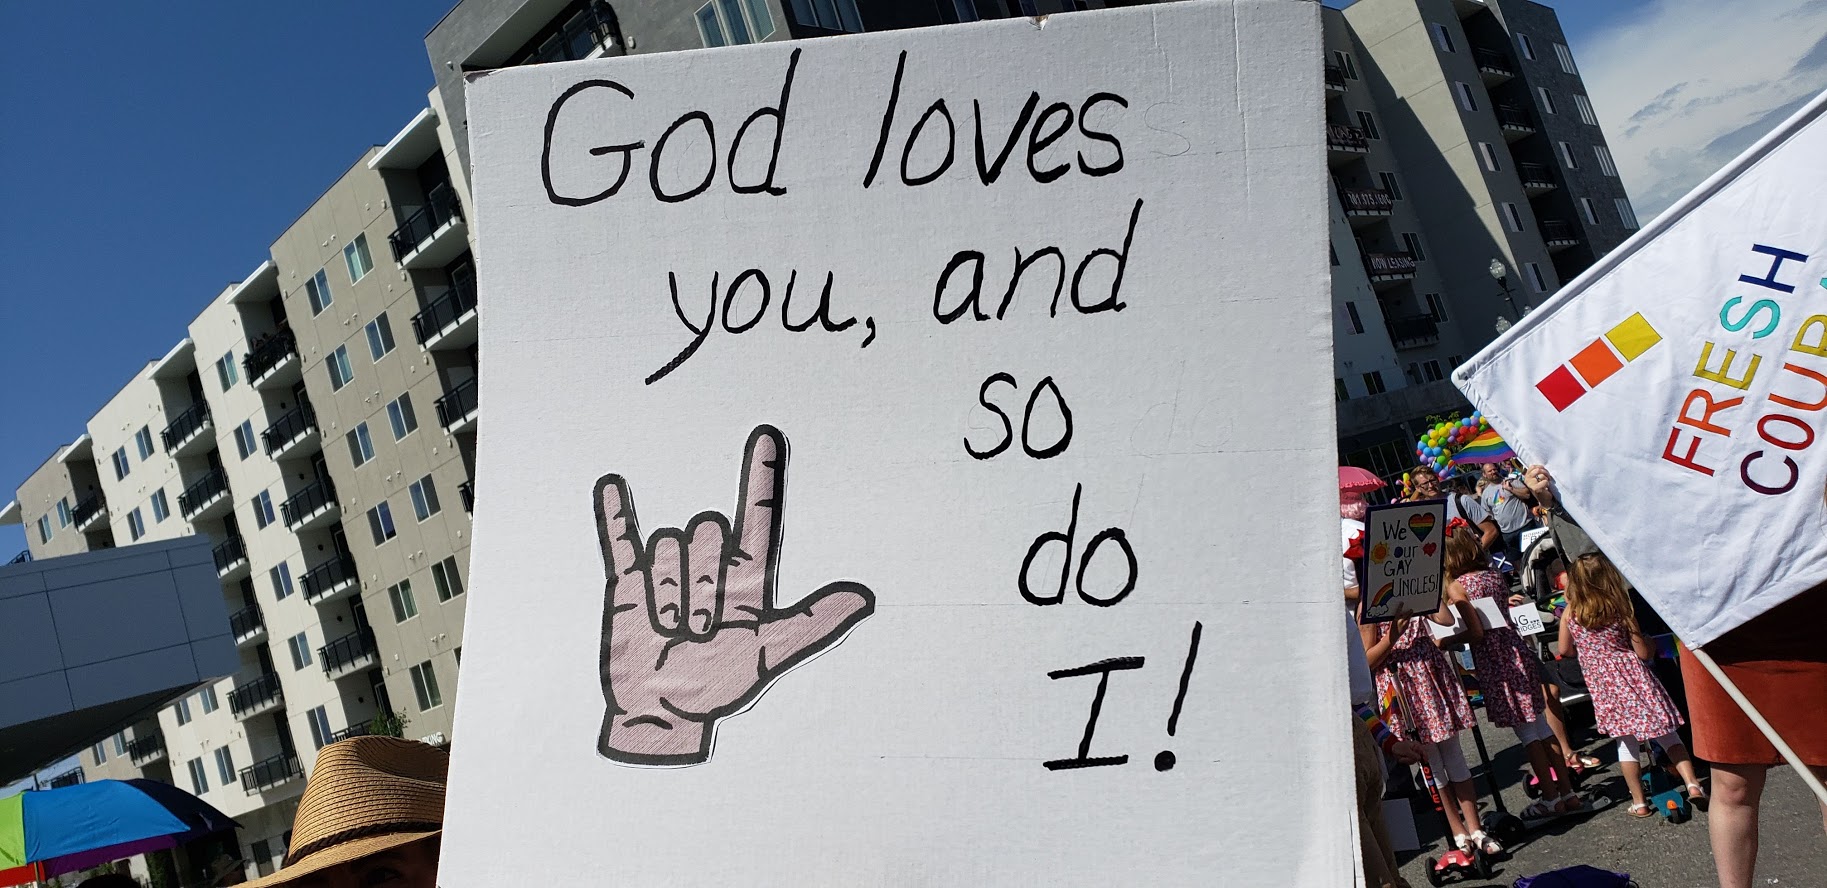 God loves
you, and
so
do
I!
FRESH
We
our
GAY
UNCLES!
NOW LEASING